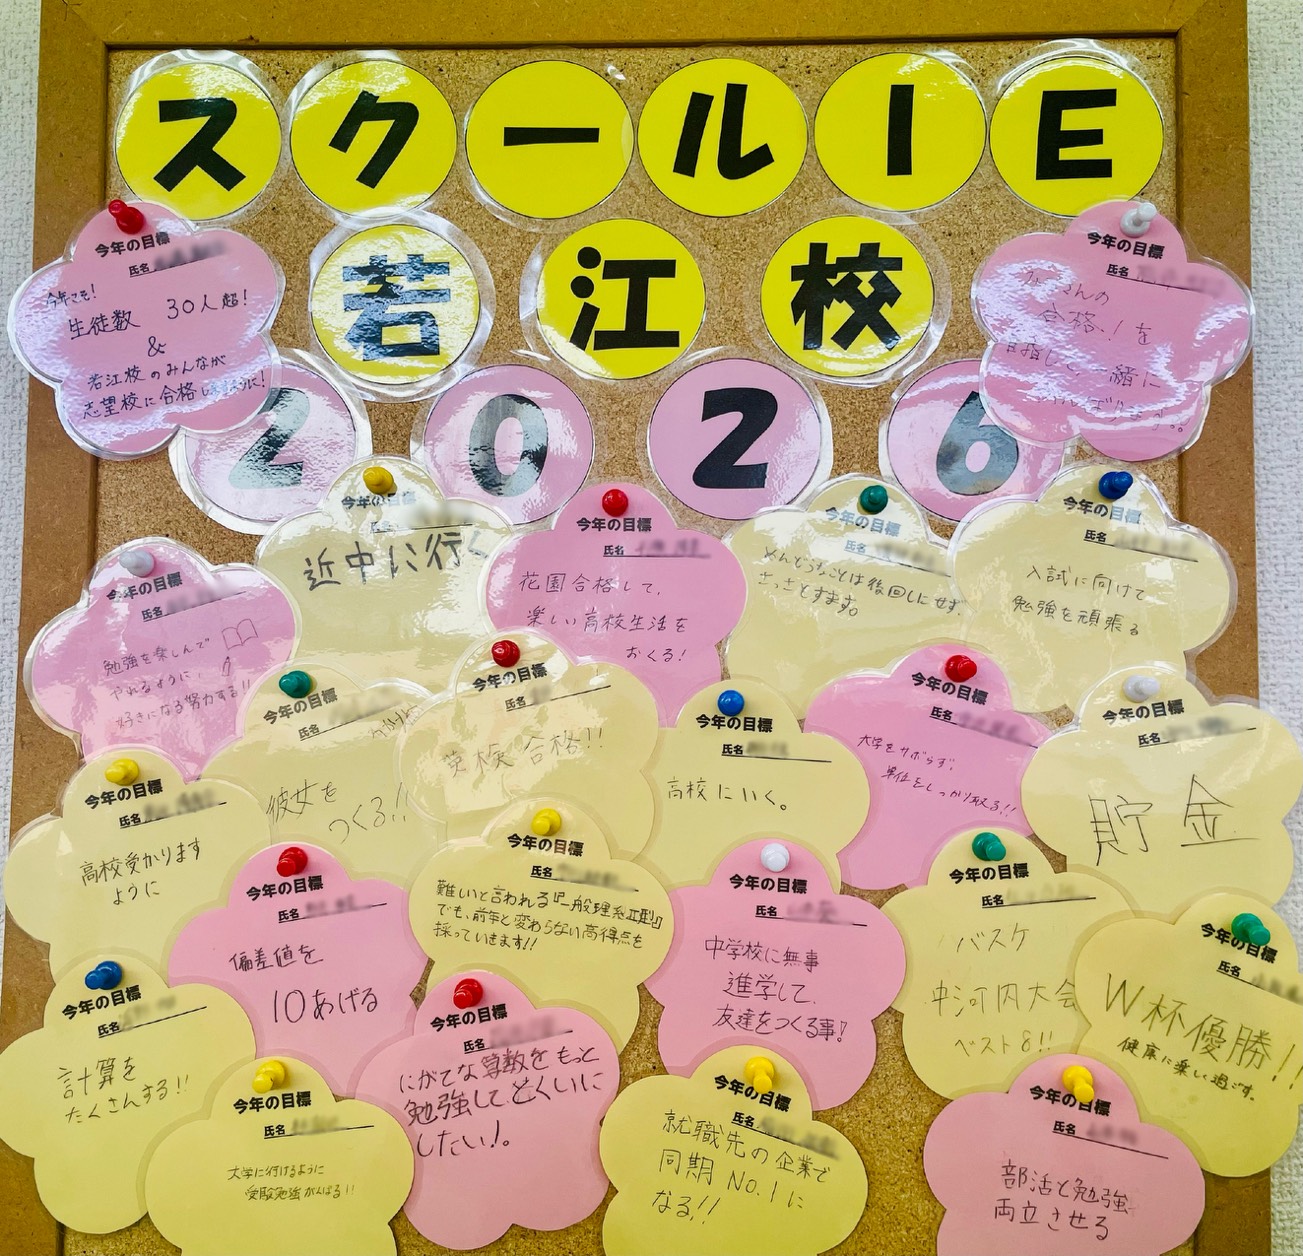 スクールIE
若江校
2026
今年の目標
氏名
今年こそ!
生徒数 30人超!
&
若江校のみんなが
志望校に合格しますように!
今年の目標
氏名
合格!を
目指して、一緒に
今年の目標
氏名
近中に行く
今年の目標
氏名
花園合格して、
楽しい高校生活を
おくる!
今年の目標
氏名
めんどうなことは後回しにせず、
さっさとすます。
今年の目標
氏名
入試に向けて
勉強を頑張る
今年の目標
氏名
勉強を楽しんで
やれるように、
好きになる努力する!!
今年の目標
氏名
彼女を
つくる!!
今年の目標
氏名
英検合格!!
今年の目標
氏名
高校にいく。
今年の目標
氏名
大学をサボらず、
単位をしっかり取る!!
今年の目標
氏名
貯金
今年の目標
氏名
高校受かります
ように
今年の目標
氏名
偏差値を
10あげる
今年の目標
氏名
難しいと言われる『一般理系Ⅱ型』
でも、前年と変わらない高得点を
採っていきます!!
今年の目標
氏名
中学校に無事
進学して、
友達をつくる事!
今年の目標
氏名
バスケ
中河内大会
ベスト8!!
今年の目標
氏名
W杯優勝!!
健康に楽しい過ごす。
今年の目標
氏名
計算を
たくさんする!!
今年の目標
氏名
大学に行けるように
受験勉強がんばる!!
今年の目標
氏名
にがてな算数をもっと
勉強してとくいに
したい!。
今年の目標
氏名
就職先の企業で
同期No.1に
なる!!
今年の目標
氏名
部活と勉強
両立させる